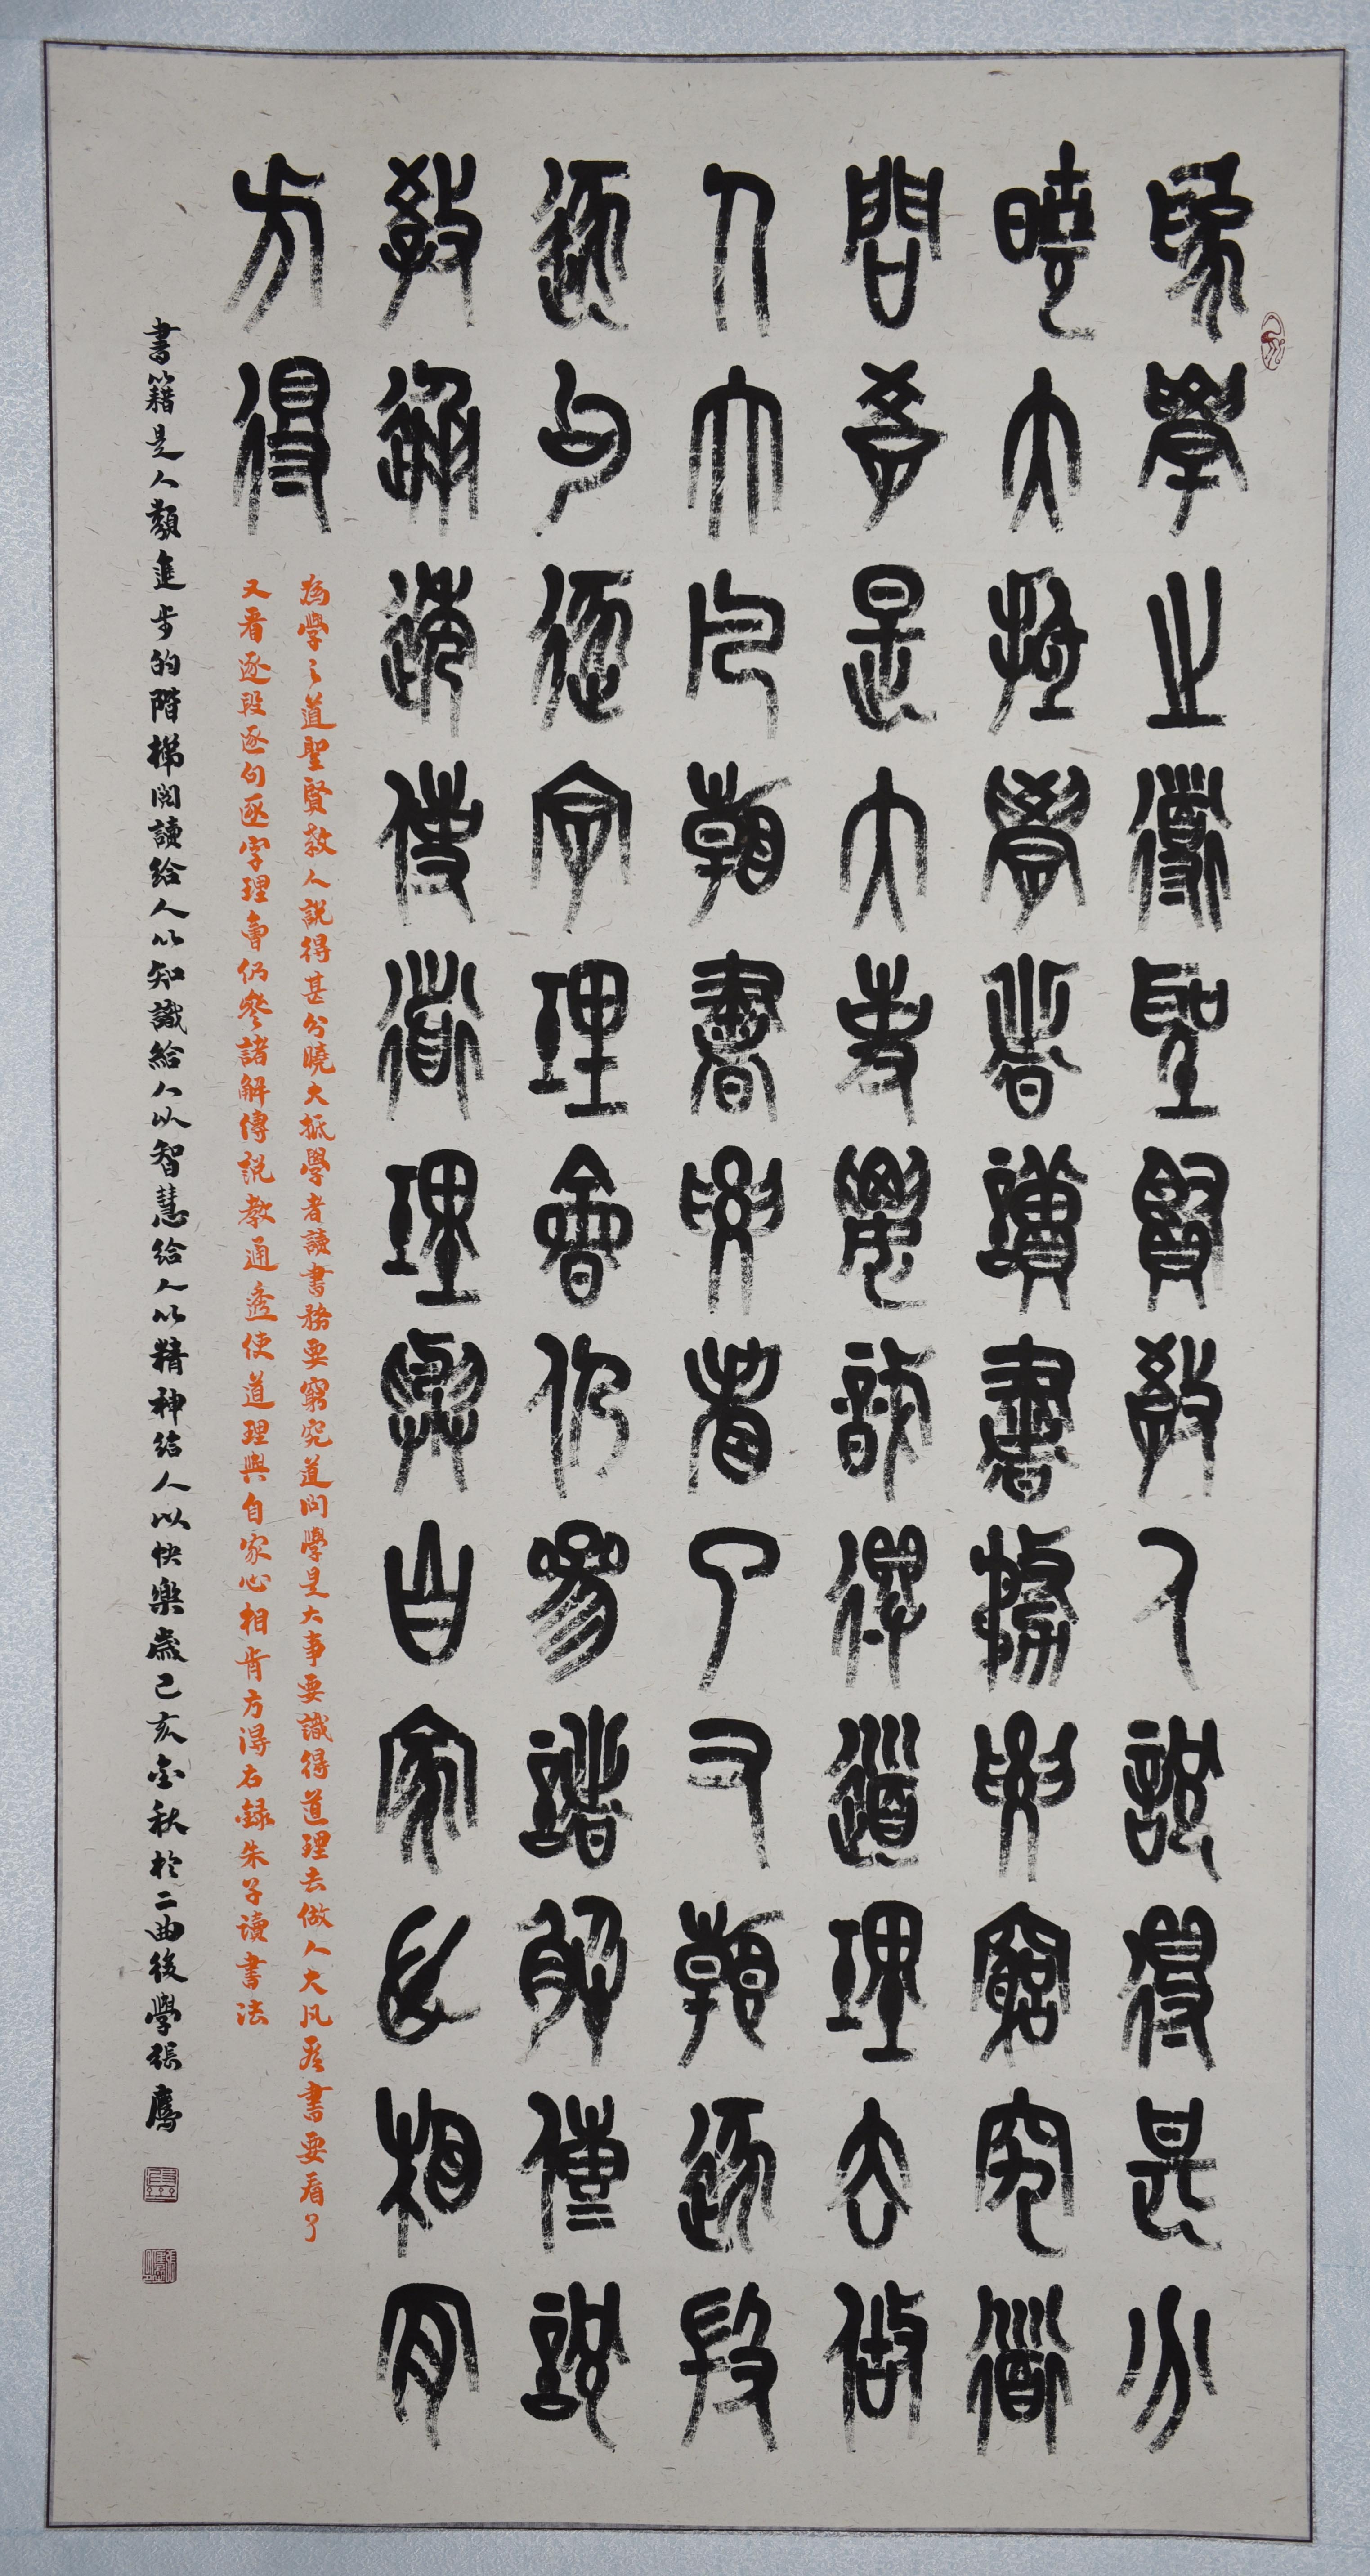 為學之道聖賢教人說得甚分
曉大抵學者讀書務要窮究道
問學是大事要識得道理去做
人大凡看書要看了又看逐段
逐句逐字理會仍參諸解傳說
教通透使道理與自家心相肯
方得
為學之道聖賢教人說得甚分曉大抵學者讀書務要窮究道問學是大事要識得道理去做人大凡看書要看了
又看逐段逐句逐字理會仍參諸解傳説教通透使道理與自家心相肯方得右録朱子讀書法
書籍是人類進步的階梯閱讀給人以知識給人以智慧給人以精神給人以快樂歲己亥金秋於二曲後學張鷹